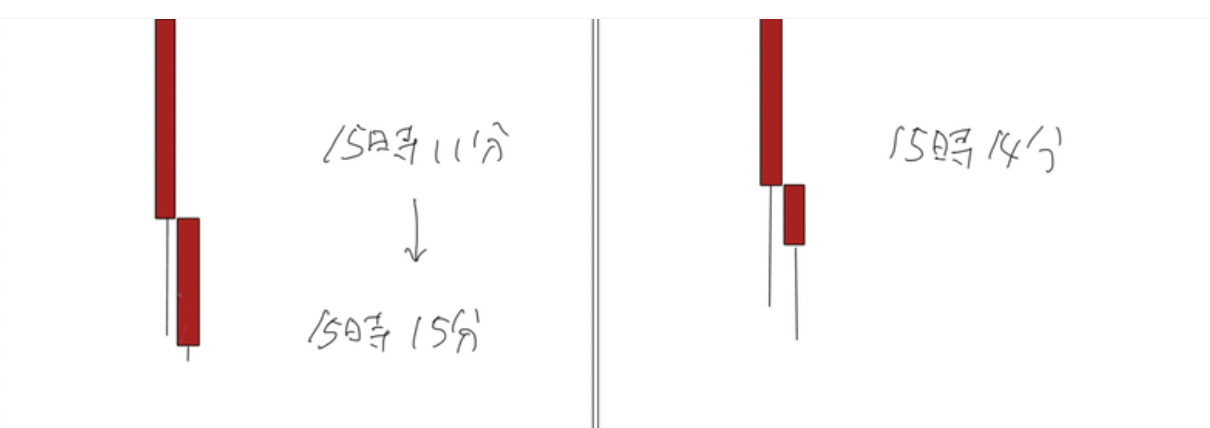 15時11分
↓
15時15分
15時14分